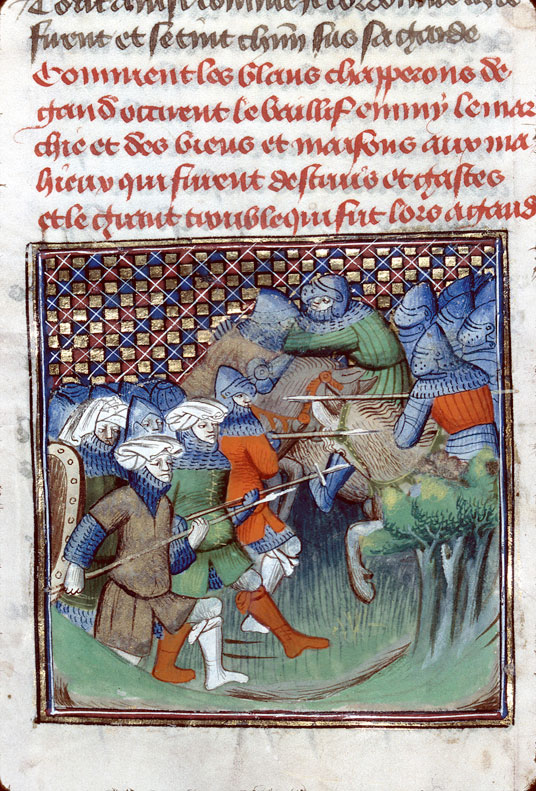 furent et se tint chūn sus sa garde
Comment les blans chapperons de
gand occirent le baillif emmy le mar
chie et des biens et maisons aux ma
hieux qui furent destruis et gastes
et le grant trouble qui fut lors a gand